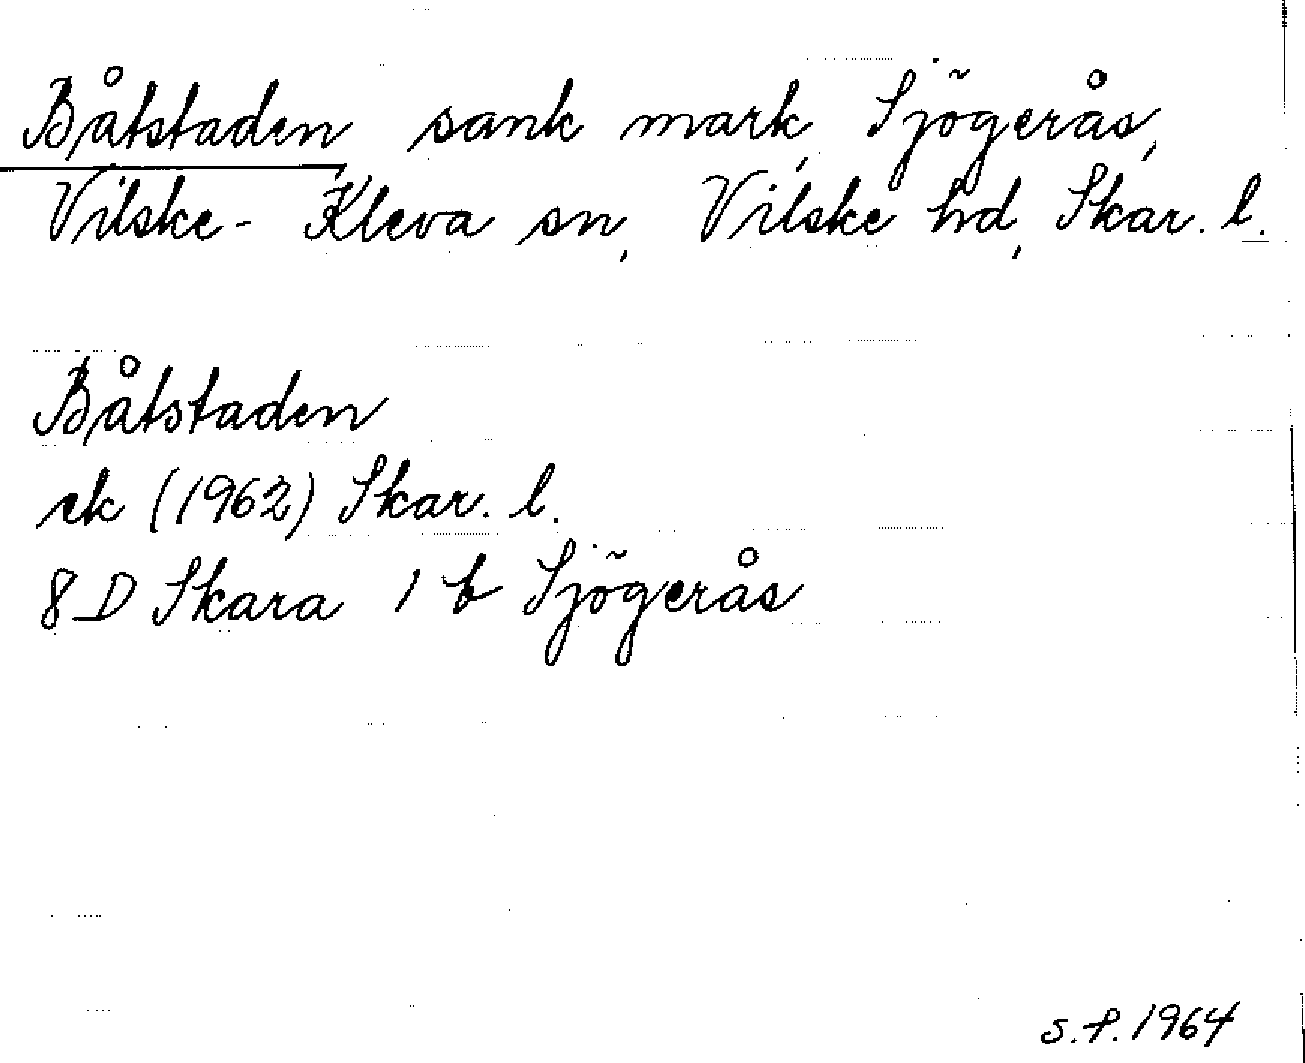 Båtstaden, sank mark, Sjögerås,
Vilske-Kleva sn, Vilske hd, Skar. l.
Båtstaden
ek (1962) Skar. l.
8D Skara 1 b Sjögerås
S.P. 1964